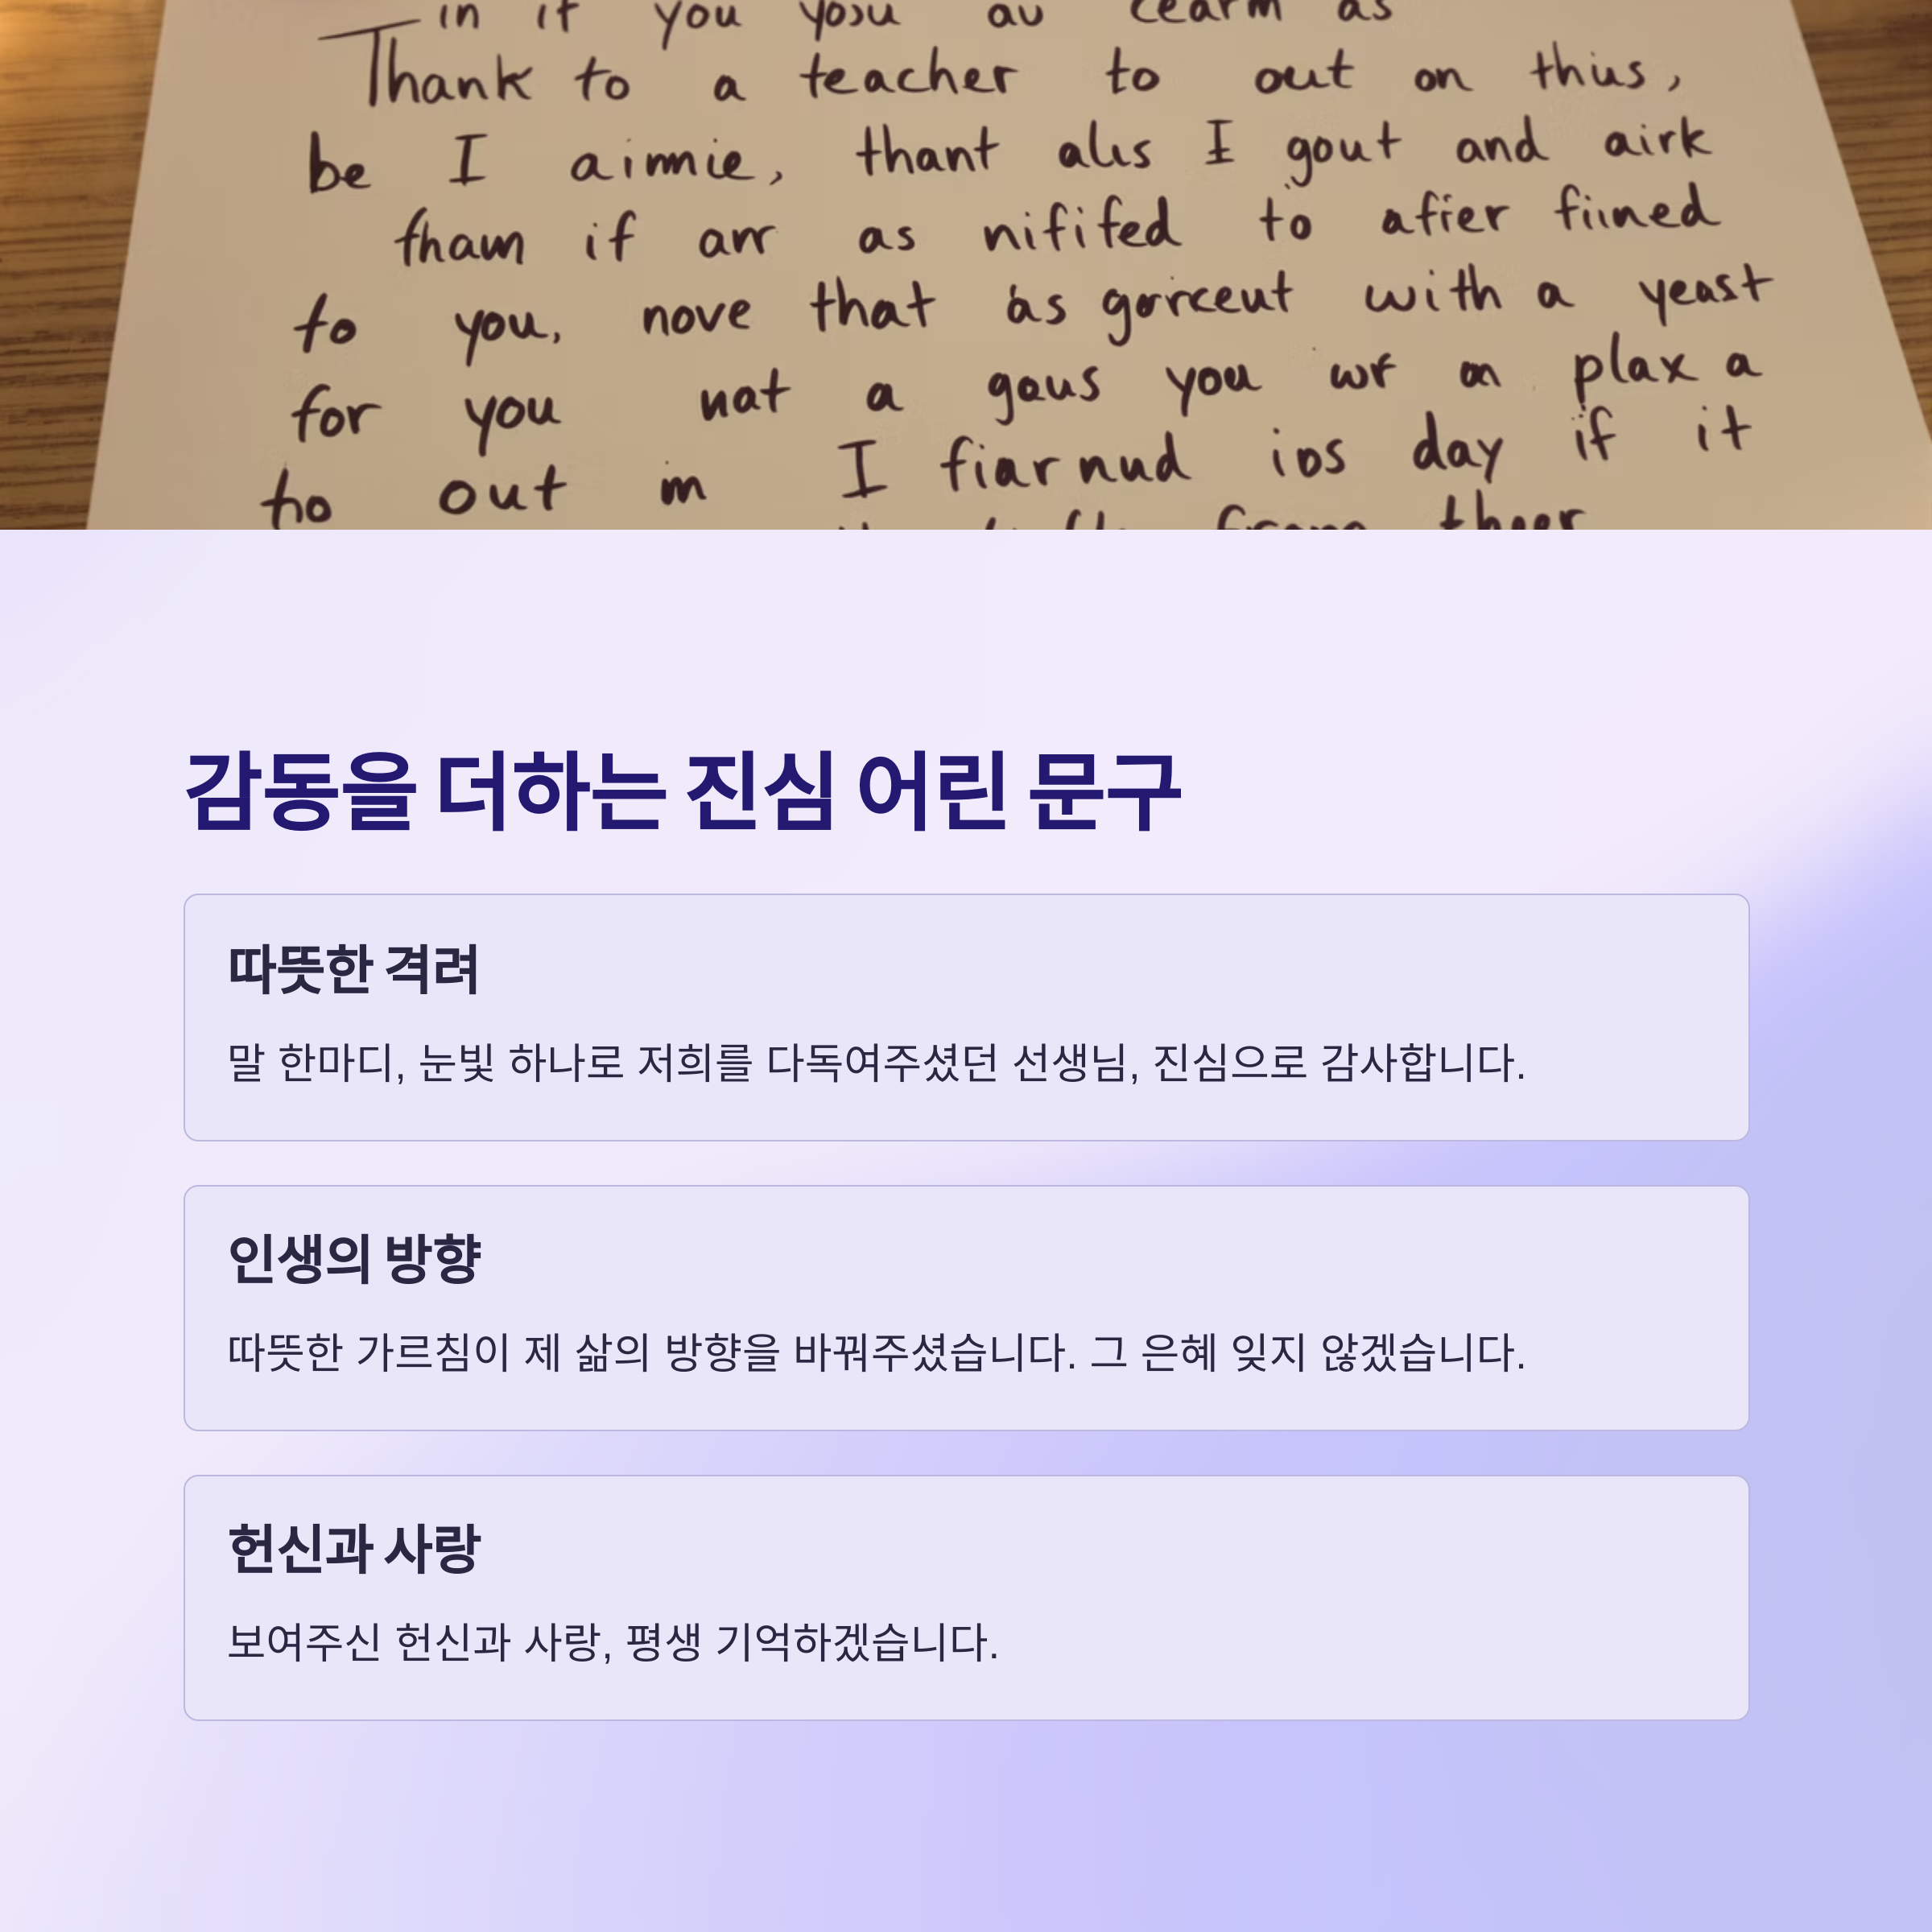 in if you yosu au cearm as
Thank to a teacher to out on thus,
be I aimie, thant alis I gout and airk
tham if arr as nifited to afier fiined
to you, nove that as gorrceut with a yeast
for you nat a gous you wr on plax a
to out in I fiar nud ios day if it
from theer
감동을 더하는 진심 어린 문구
따뜻한 격려
말 한마디, 눈빛 하나로 저희를 다독여주셨던 선생님, 진심으로 감사합니다.
인생의 방향
따뜻한 가르침이 제 삶의 방향을 바꿔주셨습니다. 그 은혜 잊지 않겠습니다.
헌신과 사랑
보여주신 헌신과 사랑, 평생 기억하겠습니다.